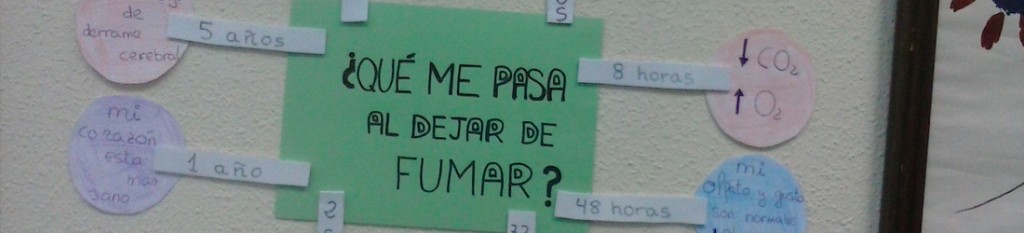 de
derrame
cerebral
5 años
¿QUÉ ME PASA
AL DEJAR DE
FUMAR?
8 horas
↓ CO₂
↑ O₂
mi
corazón
esta
mas
sano
1 año
48 horas
mi
olfato y gusto
son normales
2
72
S